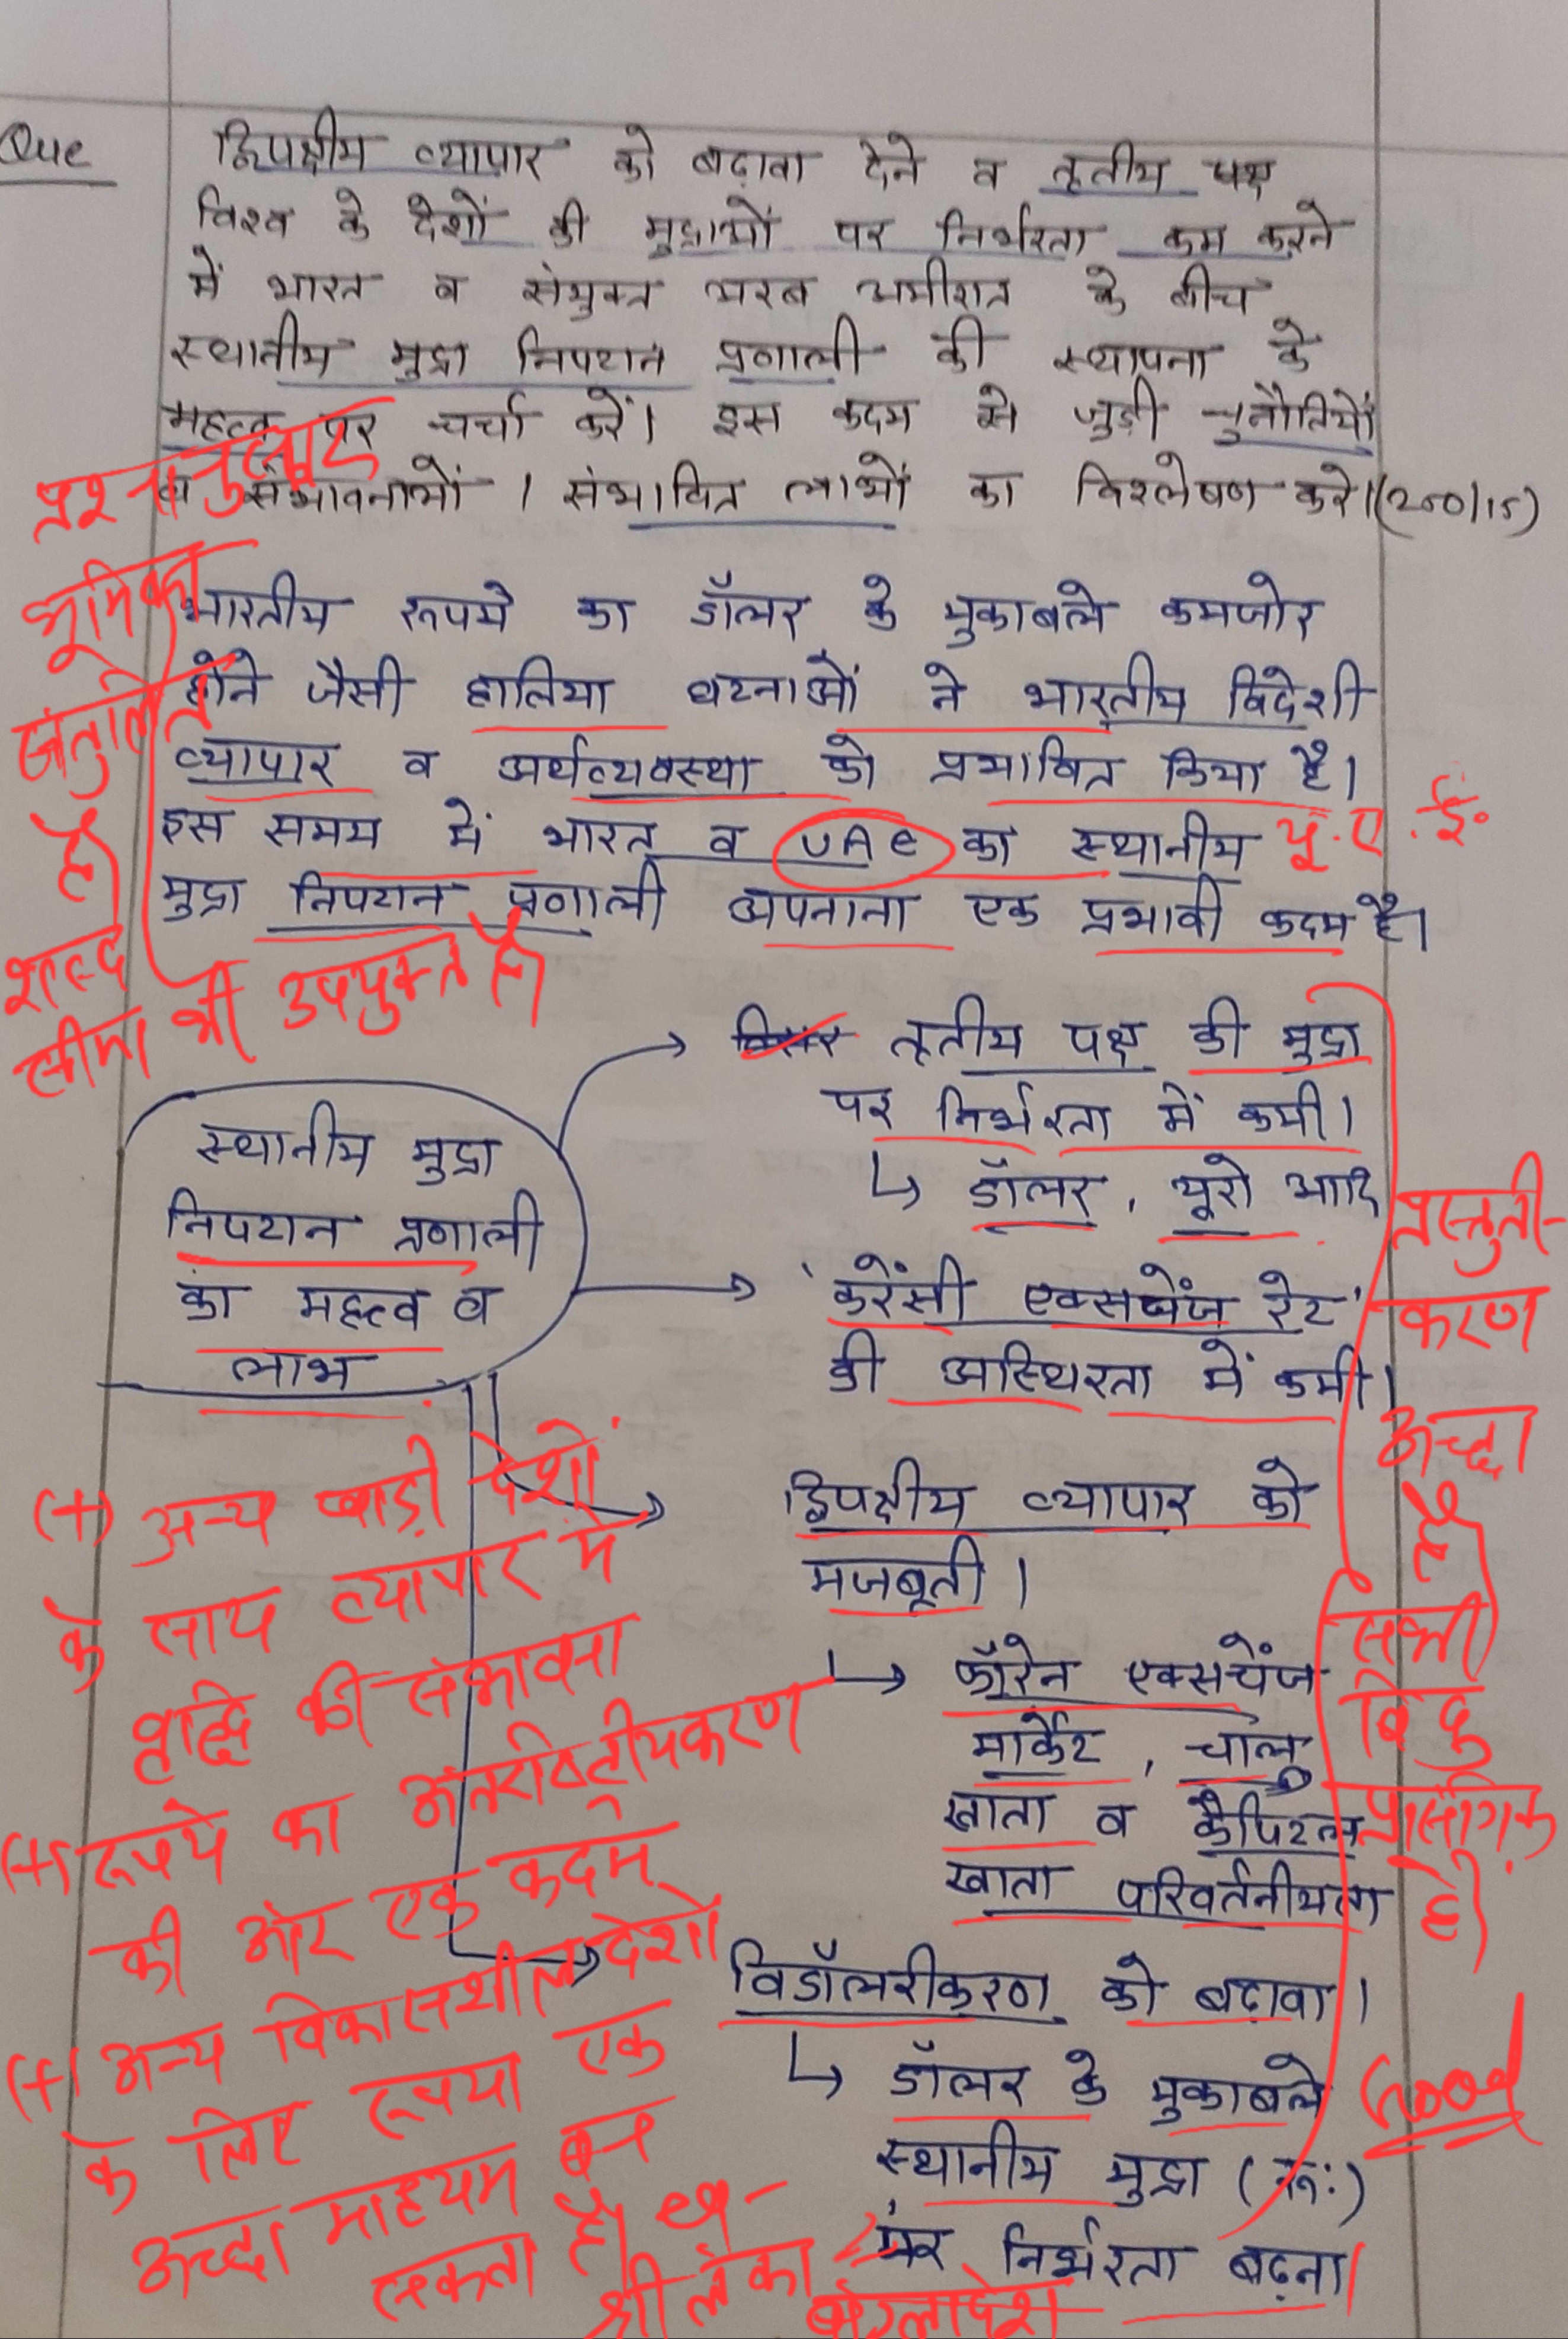 Que द्विपक्षीय व्यापार को बढ़ावा देने व तृतीय पक्ष
विश्व के देशों की मुद्राओं पर निर्भरता कम करने
में भारत व संयुक्त अरब अमीरात के बीच
स्थानीय मुद्रा निपटान प्रणाली की स्थापना के
महत्व पर चर्चा करें। इस कदम से जुड़ी चुनौतियों
व संभावनाओं / संभावित लाभों का विश्लेषण करे।(250/15)
प्रश्नानुसार
भूमिका
संतुलित
है।
शब्द
सीमा भी उपयुक्त है।
भारतीय रूपये का डॉलर के मुकाबले कमजोर
होने जैसी हालिया घटनाओं ने भारतीय विदेशी
व्यापार व अर्थव्यवस्था को प्रभावित किया है।
इस समय में भारत व UAe का स्थानीय यू.ए.ई.
मुद्रा निपटान प्रणाली अपनाना एक प्रभावी कदम है।
स्थानीय मुद्रा
निपटान प्रणाली
का महत्व व
लाभ
तृतीय पक्ष की मुद्रा
पर निर्भरता में कमी।
↳ डॉलर, यूरो आदि
'करेंसी एक्सचेंज रेट'
की अस्थिरता में कमी।
द्विपक्षीय व्यापार को
मजबूती।
↳ फॉरेन एक्सचेंज
मार्केट, चालू
खाता व कैपिटल
खाता परिवर्तनीयता
विडॉलरीकरण को बढ़ावा।
↳ डॉलर के मुकाबले
स्थानीय मुद्रा (रू:)
पर निर्भरता बढ़ना।
प्रस्तुती-
करण
अच्छा
है
सभी
बिंदु
प्रासंगिक
है।
Good
(+) अन्य खाड़ी देशों
के साथ व्यापार में
वृद्धि की संभावना
(+) रूपये का अंतरराष्ट्रीयकरण
की ओर एक कदम
(+) अन्य विकासशील देशों
के लिए रूपया एक
अच्छा माध्यम बन
सकता है।
श्रीलंका
बांग्लादेश